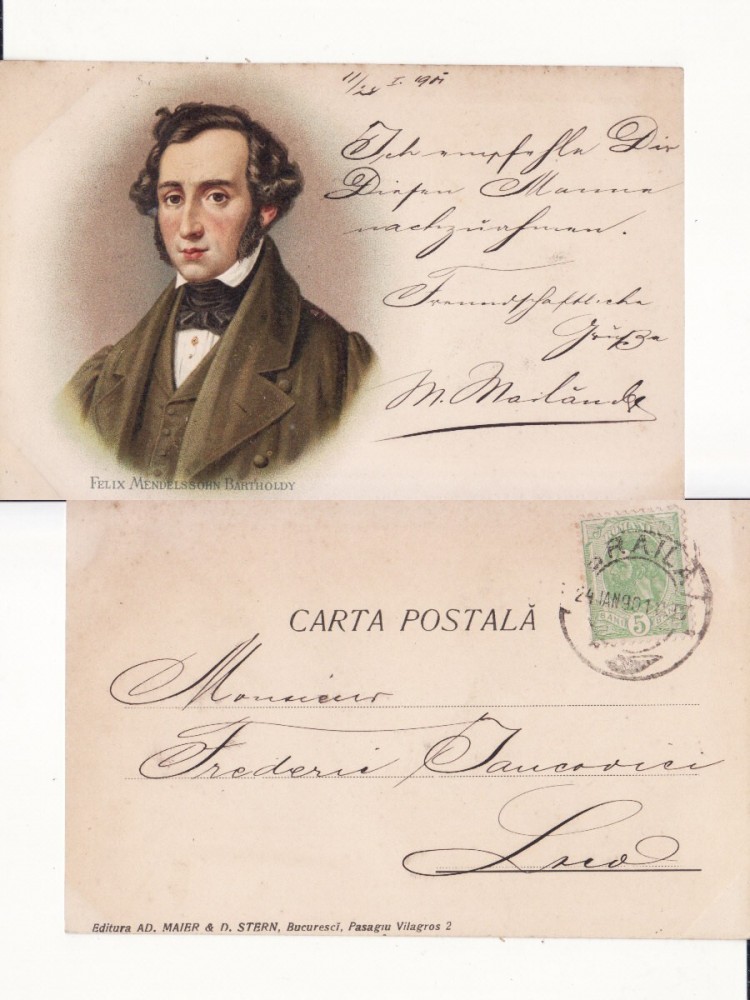 11/24 I. 901
Ich empfehle Dir
Diesen Manne
nachzuahmen.
Freundschaftliche
Grüße
M. Mailänd
FELIX MENDELSSOHN BARTHOLDY
BRAILA
24 JAN 901
BANI 5
CARTA POSTALĂ
Monsieur
Frederic Iancovici
Loco
Editura AD. MAIER & D. STERN, Bucurescĭ, Pasagiu Vilagros 2